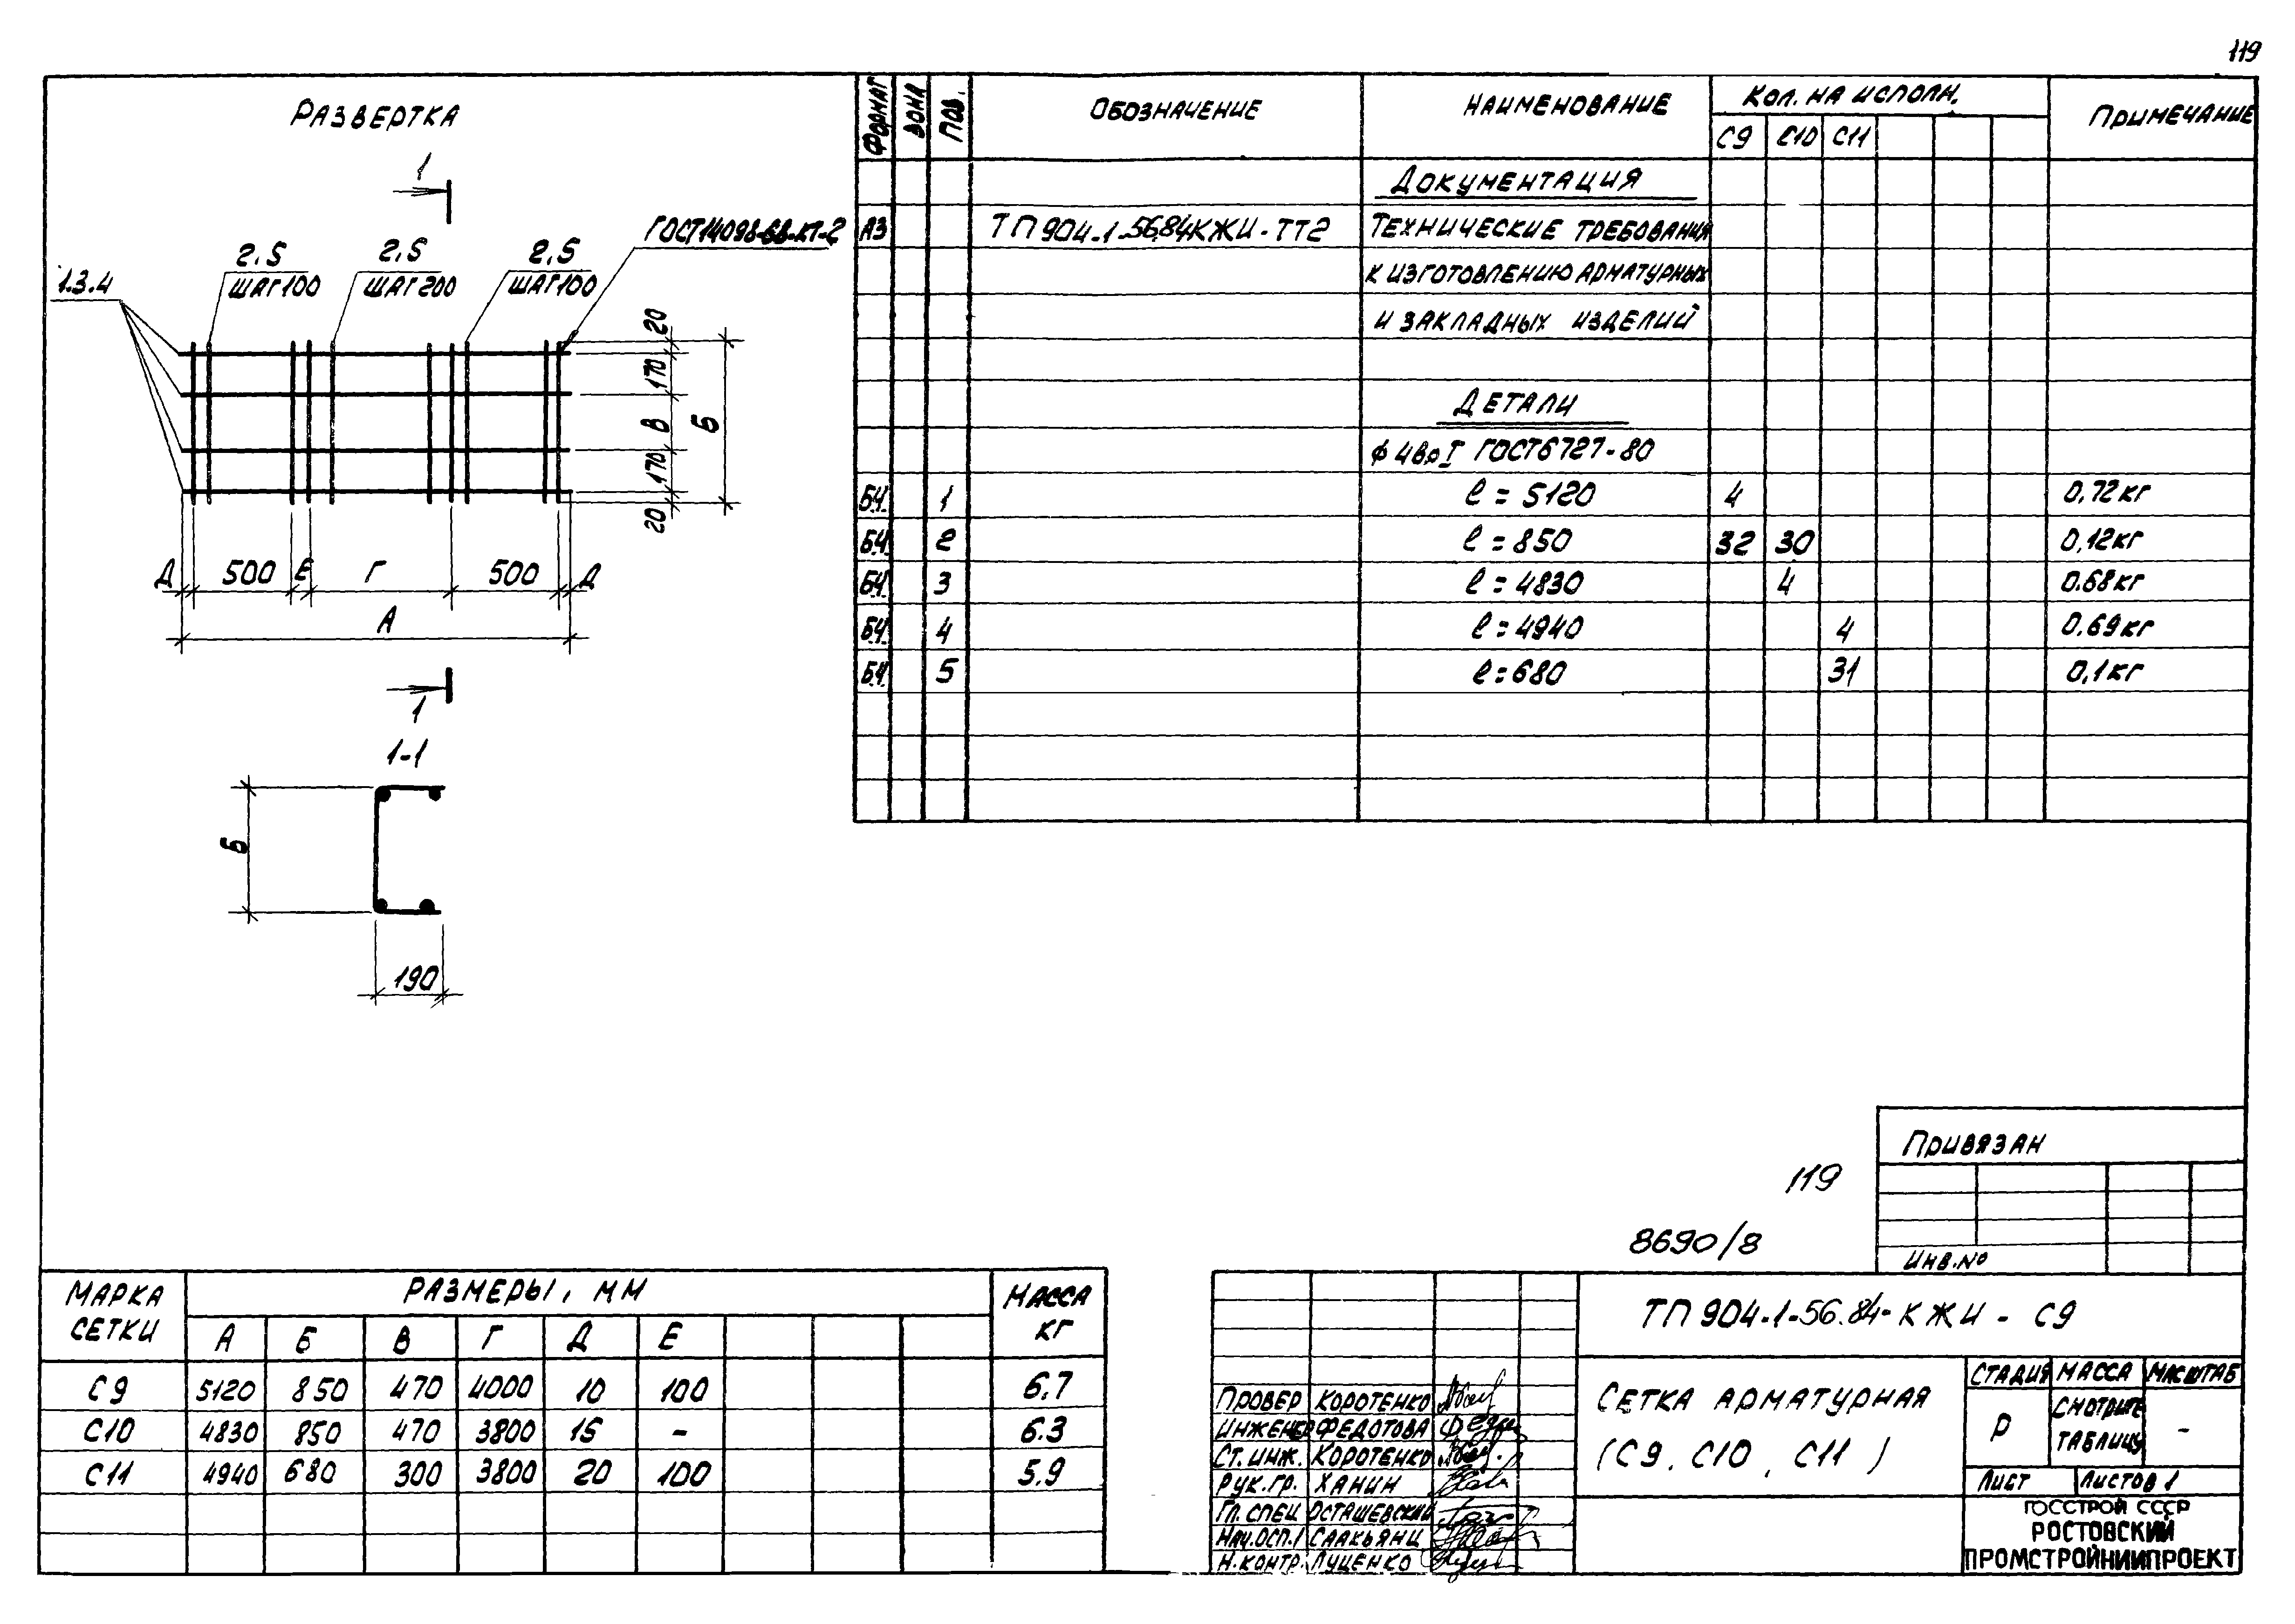 119
РАЗВЕРТКА
1
ГОСТ14098-68-КТ-2
2.5
ШАГ100
2.5
ШАГ200
2.5
ШАГ100
1.3.4
20
170
В
Б
170
20
Д 500 Е Г 500 Д
А
1
1-1
Б
190
ФОРМАТ ЗОНА ПОЗ. ОБОЗНАЧЕНИЕ НАИМЕНОВАНИЕ КОЛ. НА ИСПОЛН. ПРИМЕЧАНИЕ
С9 С10 С11
ДОКУМЕНТАЦИЯ
А3 ТП904-1-56.84КЖИ-ТТ2 ТЕХНИЧЕСКИЕ ТРЕБОВАНИЯ
К ИЗГОТОВЛЕНИЮ АРМАТУРНЫХ
И ЗАКЛАДНЫХ ИЗДЕЛИЙ
ДЕТАЛИ
ф4ВрI ГОСТ6727-80
БЧ. 1 ℓ=5120 4 0,72кг
БЧ. 2 ℓ=850 32 30 0,12кг
БЧ. 3 ℓ=4830 4 0.68кг
БЧ. 4 ℓ=4940 4 0.69кг
БЧ. 5 ℓ=680 31 0,1кг
ПРИВЯЗАН
ИНВ.№
119
8690/8
МАРКА СЕТКИ РАЗМЕРЫ, ММ МАССА КГ
А Б В Г Д Е
С9 5120 850 470 4000 10 100 6.7
С10 4830 850 470 3800 15 - 6.3
С11 4940 680 300 3800 20 100 5.9
ТП904-1-56.84-КЖИ-С9
СЕТКА АРМАТУРНАЯ
(С9, С10, С11)
СТАДИЯ МАССА МАСШТАБ
Р СМОТРИТЕ ТАБЛИЦУ -
ЛИСТ ЛИСТОВ 1
ГОССТРОЙ СССР
РОСТОВСКИЙ
ПРОМСТРОЙНИИПРОЕКТ
ПРОВЕР КОРОТЕНКО
ИНЖЕНЕР ФЕДОТОВА
СТ.ИНЖ. КОРОТЕНКО
РУК.ГР. ХАНИН
ГЛ.СПЕЦ ОСТАШЕВСКИЙ
НАЧ.ОСП.1 СААКЬЯНЦ
Н.КОНТР. ЛУЦЕНКО